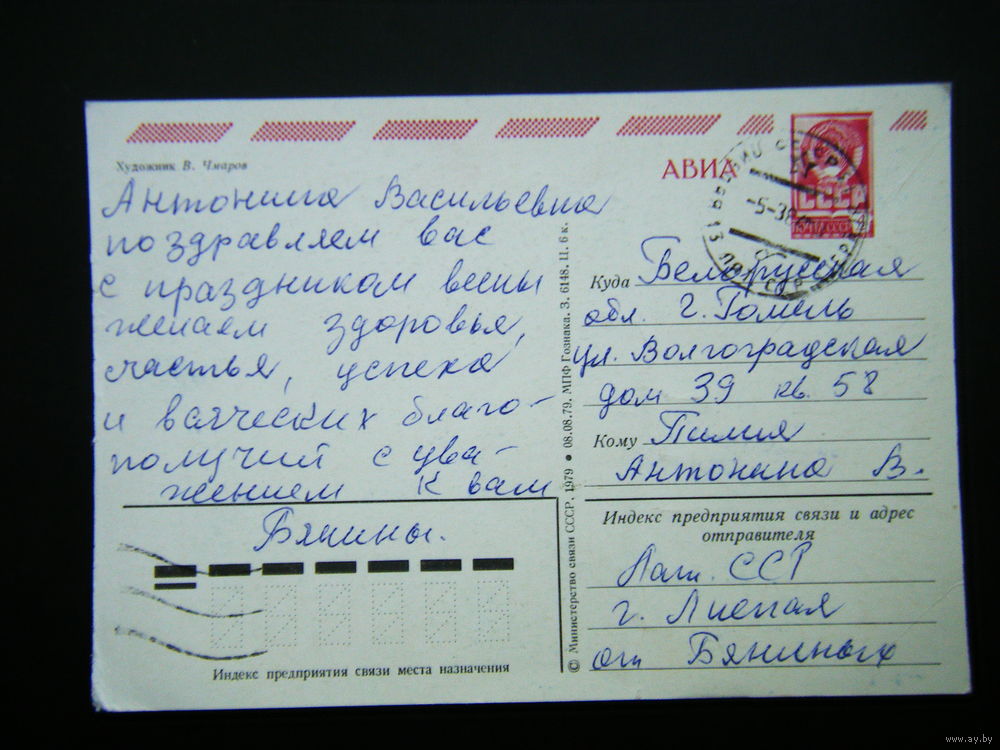 Художник В. Чмаров
Антонина Васильевна
поздравляем вас
с праздником весны
желаем здоровья,
счастья, успеха
и всяческих благо-
получий с ува-
жением к вам
Бянины.
Индекс предприятия связи места назначения
© Министерство связи СССР. 1979 • 08.08.79. МПФ Гознака. З. 6148. Ц. 6 к.
АВИА
СССР
Куда Белорусская
обл. г. Гомель
ул. Волгоградская
дом 39 кв. 58
Кому
Антонина В.
Индекс предприятия связи и адрес
отправителя
Латв. ССР
г. Лиепая
от Бяниных
www.ay.by